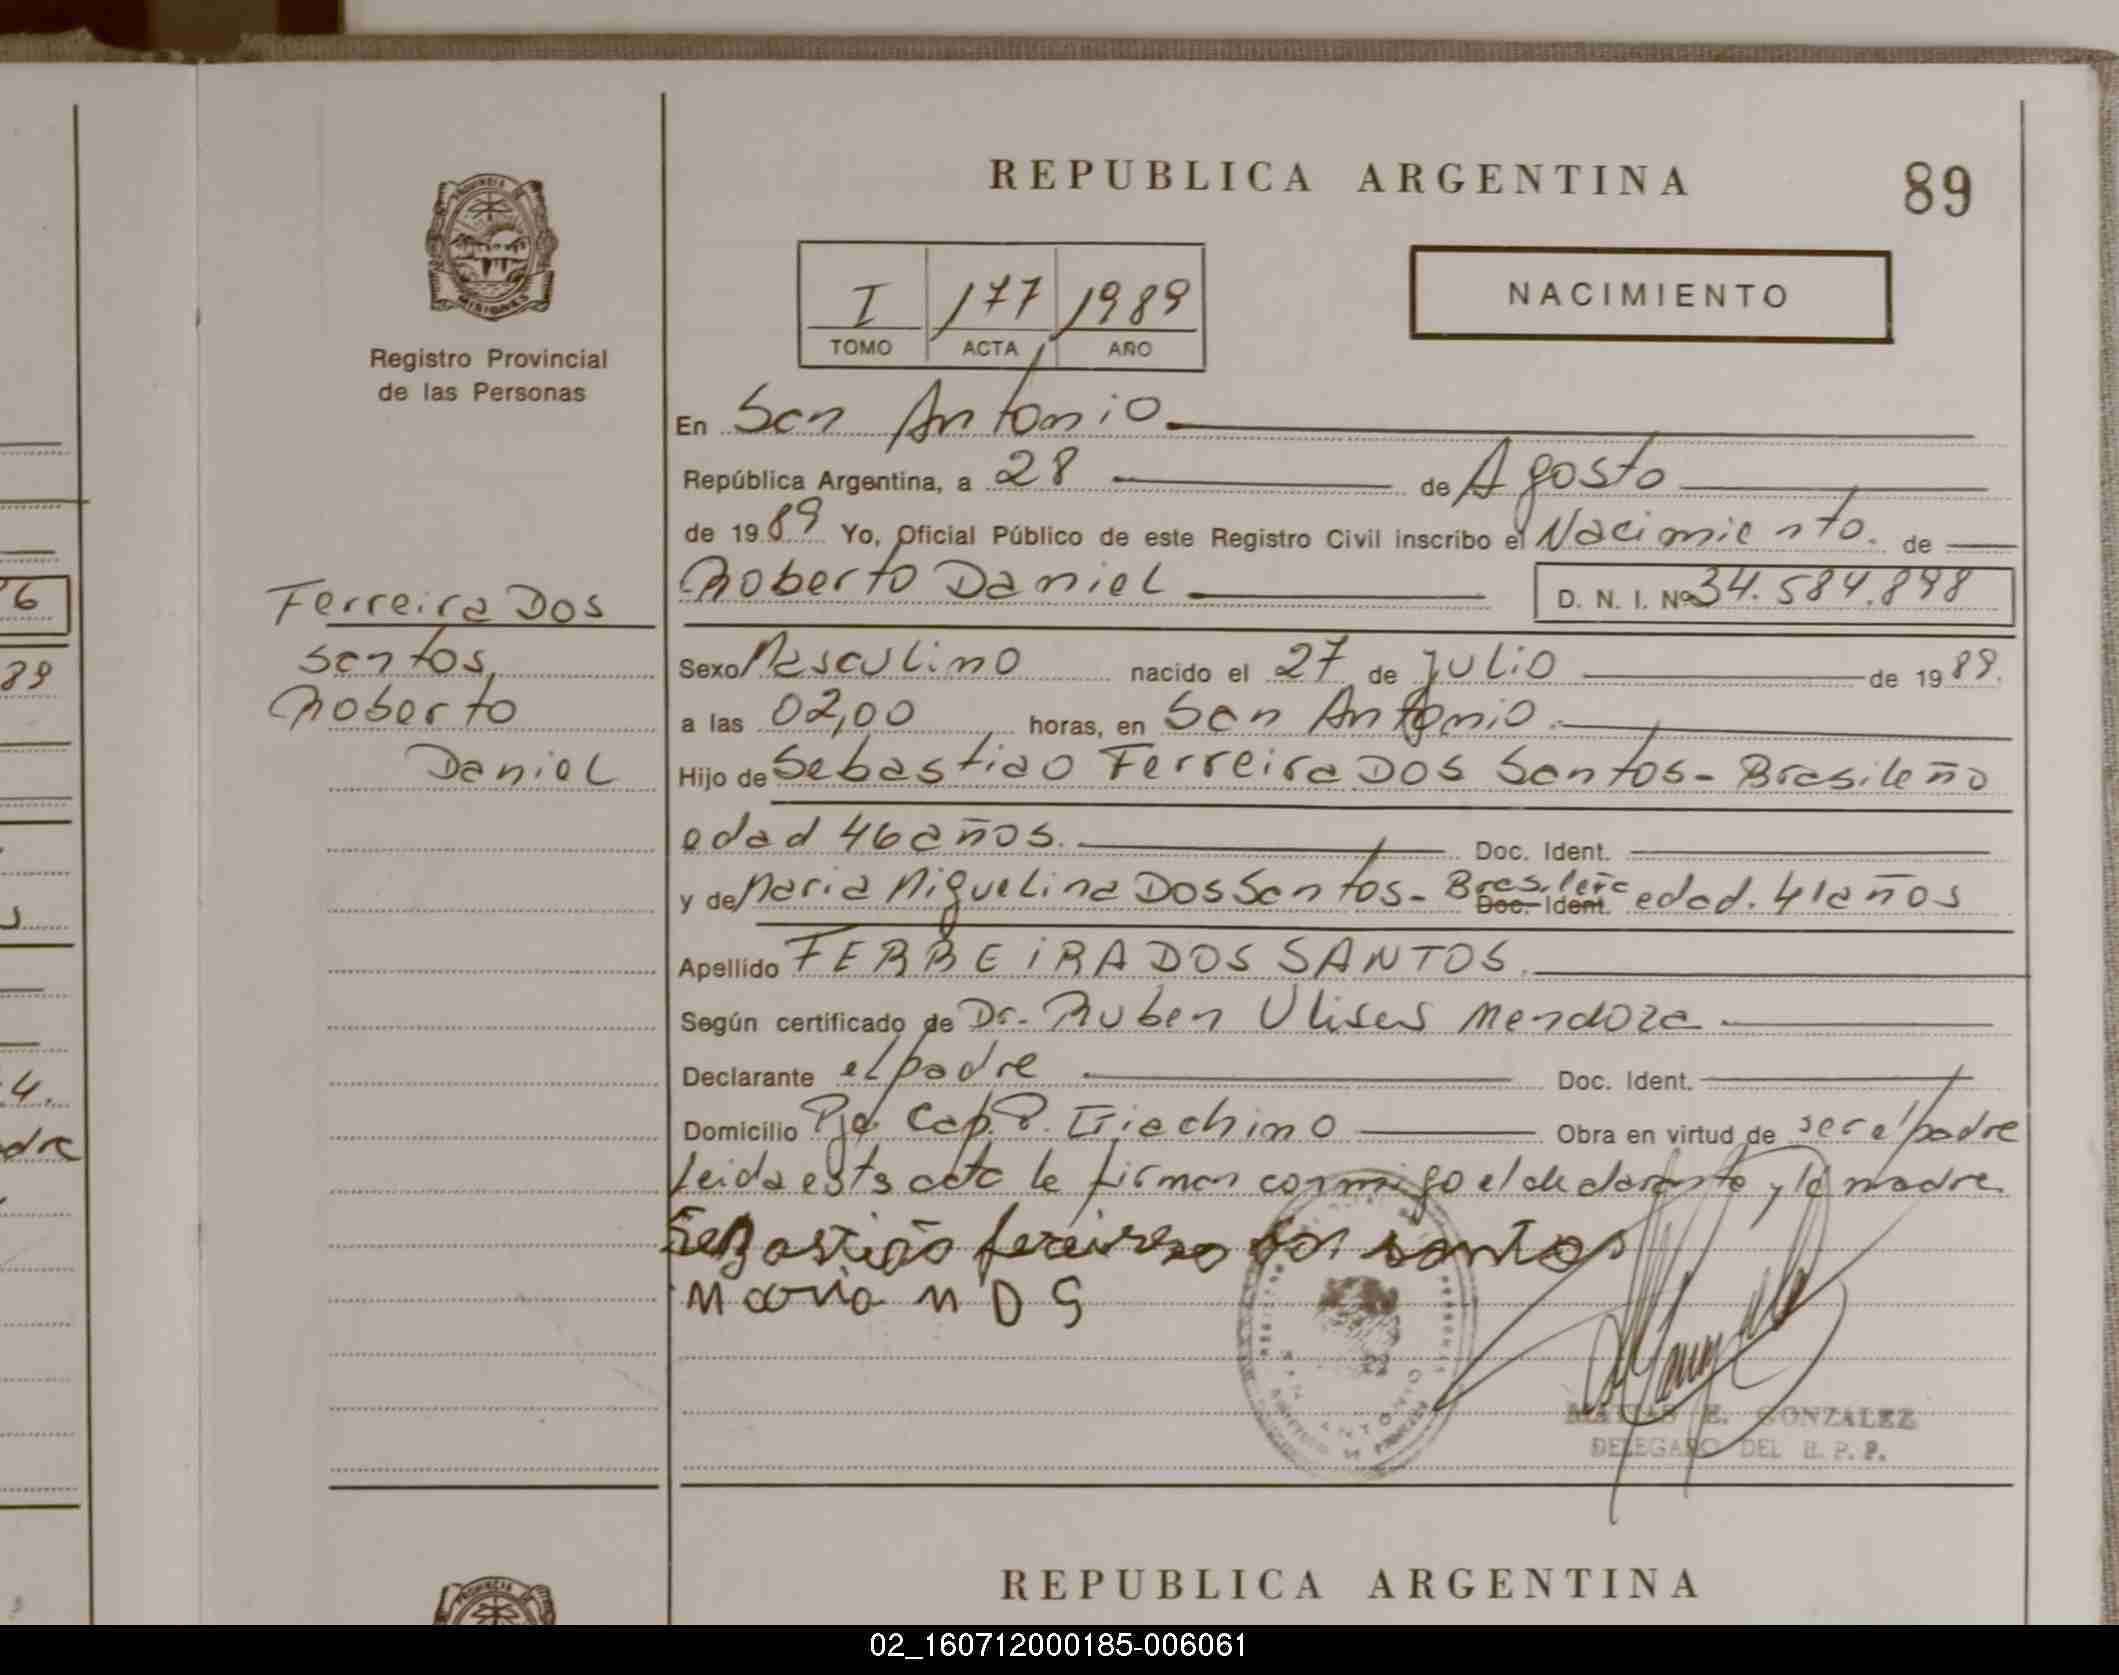 REPUBLICA ARGENTINA
89
I 177 1989
TOMO ACTA AÑO
NACIMIENTO
PROVINCIA DE
MISIONES
Registro Provincial
de las Personas
En San Antonio
República Argentina, a 28 de Agosto
de 1989 Yo, Oficial Público de este Registro Civil inscribo el Nacimiento. de
Roberto Daniel D. N. I. Nº 34.584.898
Ferreira Dos
Santos,
Roberto
Daniel
Sexo Masculino nacido el 27 de Julio de 1989.
a las 02,00 horas, en San Antonio.
Hijo de Sebastiao Ferreira Dos Santos - Brasileño
edad 46 años. Doc. Ident.
y de Maria Miguelina Dos Santos - Brasileña Doc. Ident. edad. 41 años
Apellido FERREIRA DOS SANTOS.
Según certificado de Dr. Ruben Ulises Mendoza
Declarante el padre Doc. Ident.
Domicilio Pje Cap. P. Giachino Obra en virtud de ser el padre
Leida esta acta la firman conmigo el declarante y la madre
Sebastião ferreira dos santos
Maria M D S
SAN ANTONIO
MATIAS E. GONZALEZ
DELEGADO DEL R. P. P.
REPUBLICA ARGENTINA
PROVINCIA
6
89
4.
dre
02_160712000185-006061